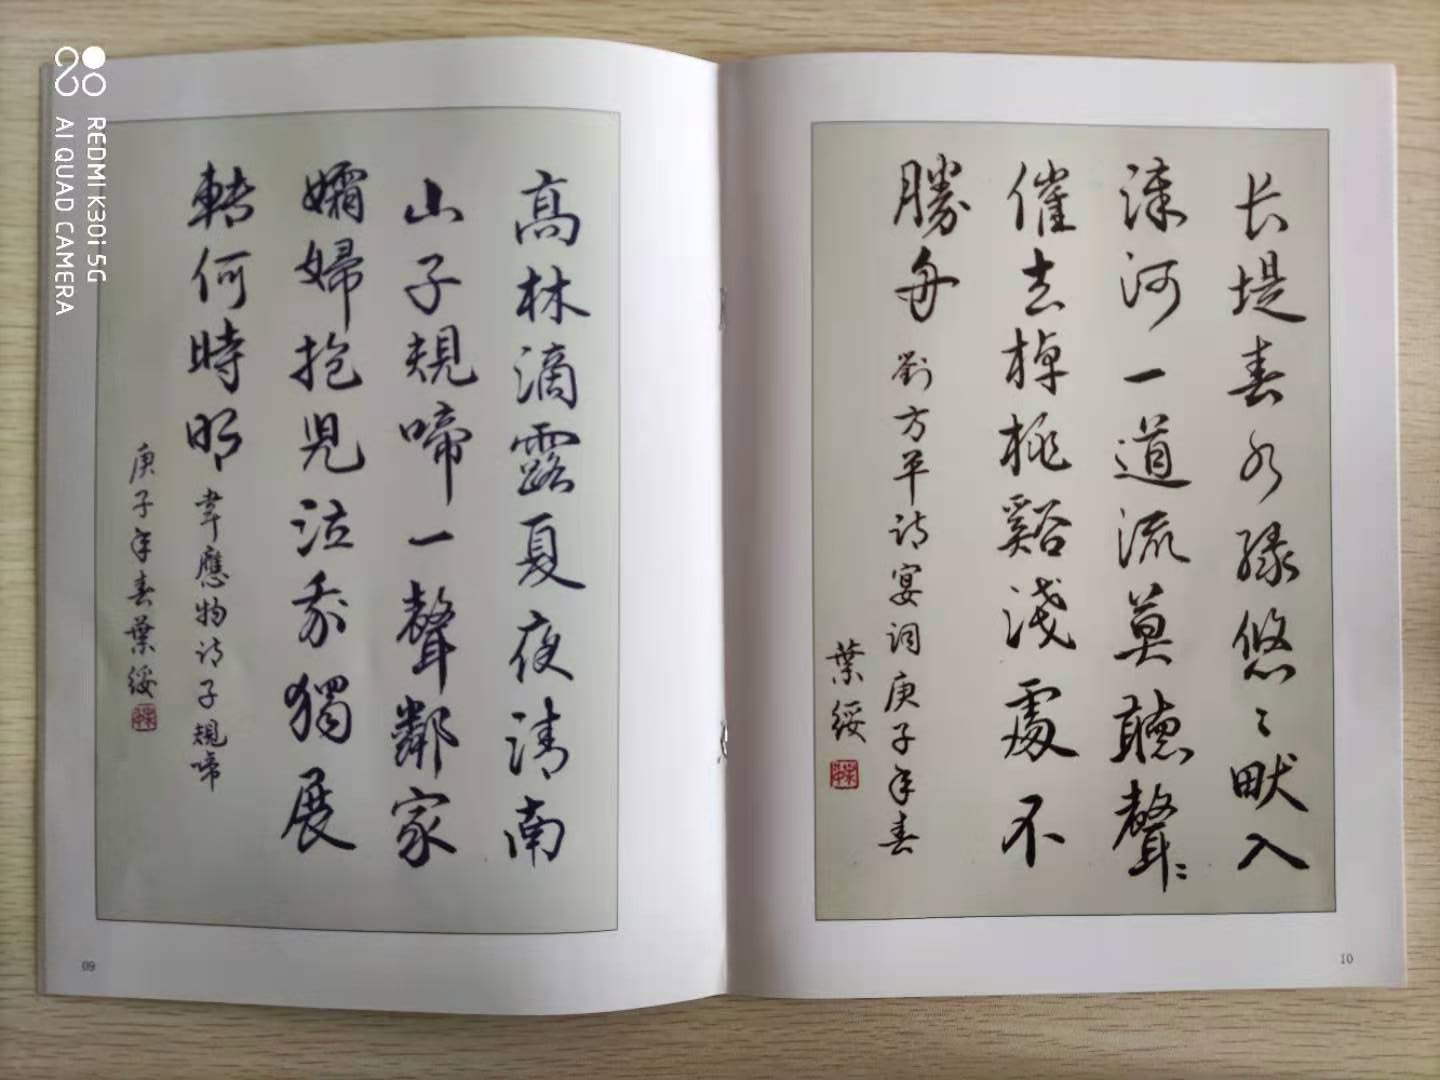 REDMI K30i 5G
AI QUAD CAMERA
高林滴露夏夜清南
山子規啼一聲鄰家
孀婦抱兒泣我獨展
轉何時明 韋應物诗子規啼
庚子年春葉綏
09
长堤春水绿悠々畎入
漳河一道流莫聽聲々
催去棹桃谿淺處不
勝舟 劉方平诗宴词庚子年春
葉綏
10